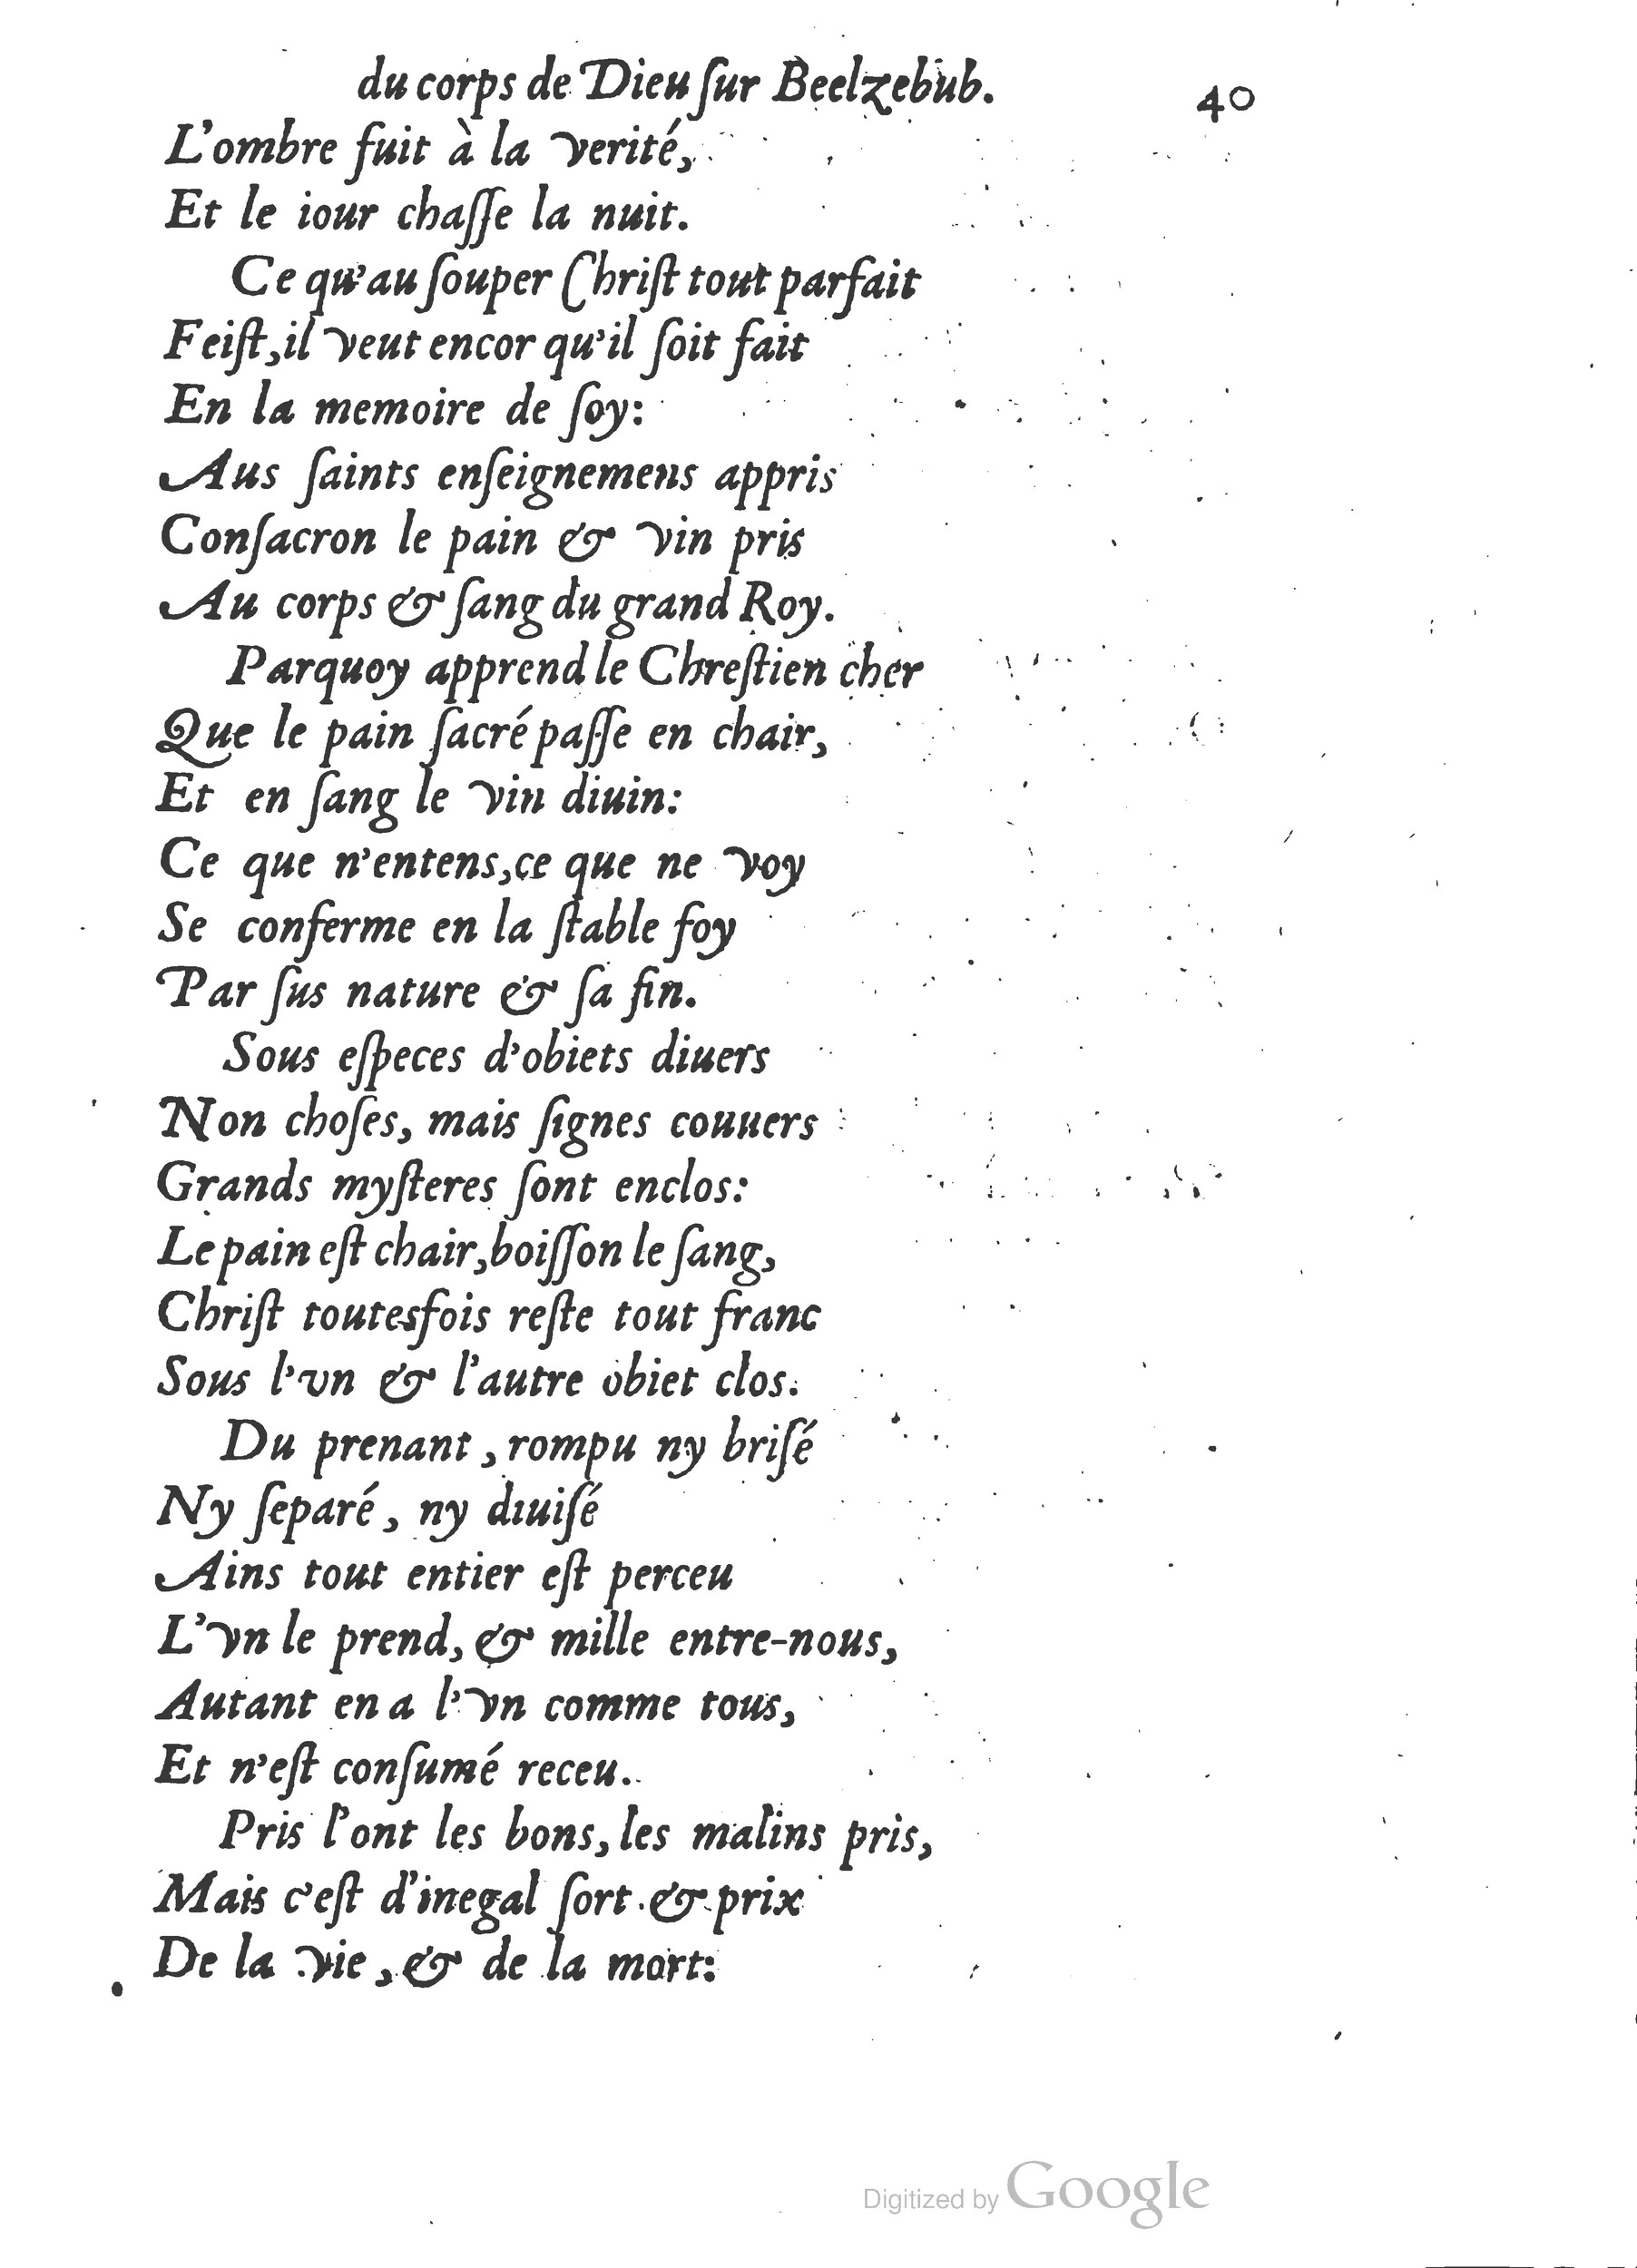 du corps de Dieu ſur Beelzebub. 40
L'ombre fuit à la verité,
Et le iour chaſſe la nuit.
Ce qu'au ſouper Chriſt tout parfait
Feiſt, il veut encor qu'il ſoit fait
En la memoire de ſoy:
Aus ſaints enſeignemens appris
Conſacron le pain & vin pris
Au corps & ſang du grand Roy.
Parquoy apprend le Chreſtien cher
Que le pain ſacré paſſe en chair,
Et en ſang le vin diuin:
Ce que n'entens, ce que ne voy
Se conferme en la ſtable foy
Par ſus nature & ſa fin.
Sous eſpeces d'obiets diuers
Non choſes, mais ſignes couuers
Grands myſteres ſont enclos:
Le pain eſt chair, boiſſon le ſang,
Chriſt toutesfois reſte tout franc
Sous l'vn & l'autre obiet clos.
Du prenant, rompu ny briſé
Ny ſeparé, ny diuiſé
Ains tout entier eſt perceu
L'vn le prend, & mille entre-nous,
Autant en a l'vn comme tous,
Et n'eſt conſumé receu.
Pris l'ont les bons, les malins pris,
Mais c'eſt d'inegal ſort & prix
De la vie, & de la mort:
Digitized by Google